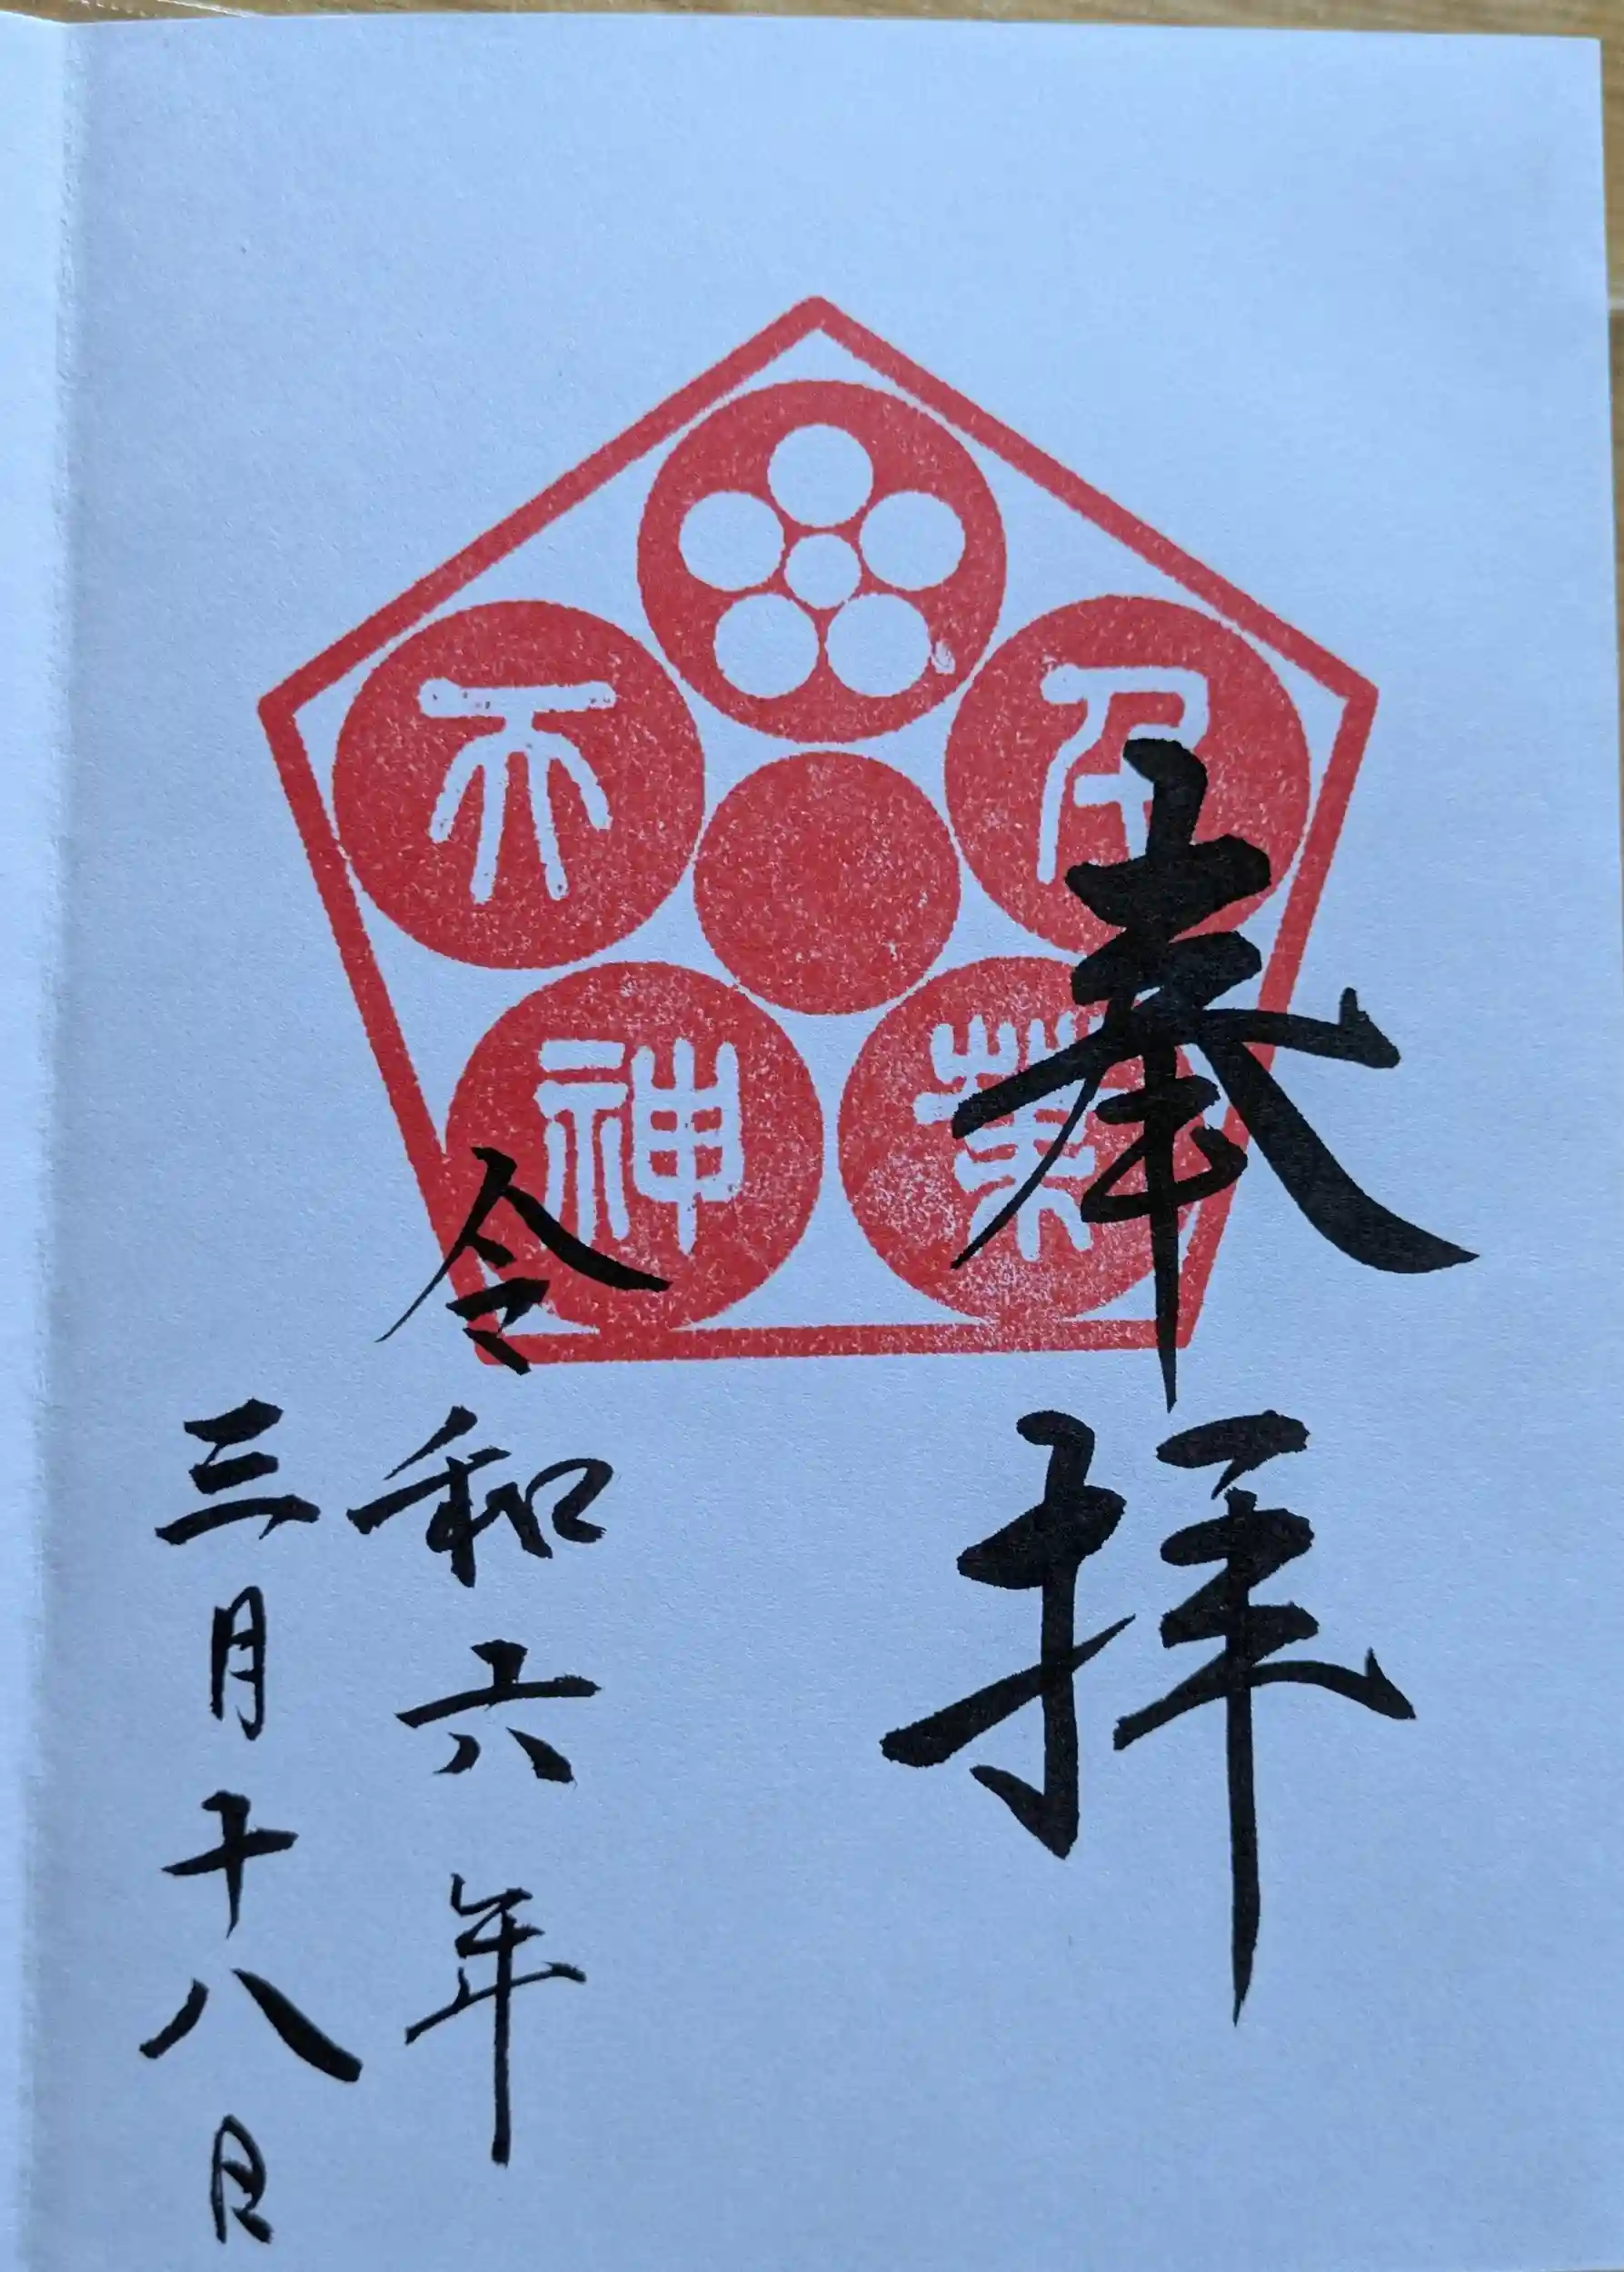 奉拝
千葉
天神
令和六年
三月十八日